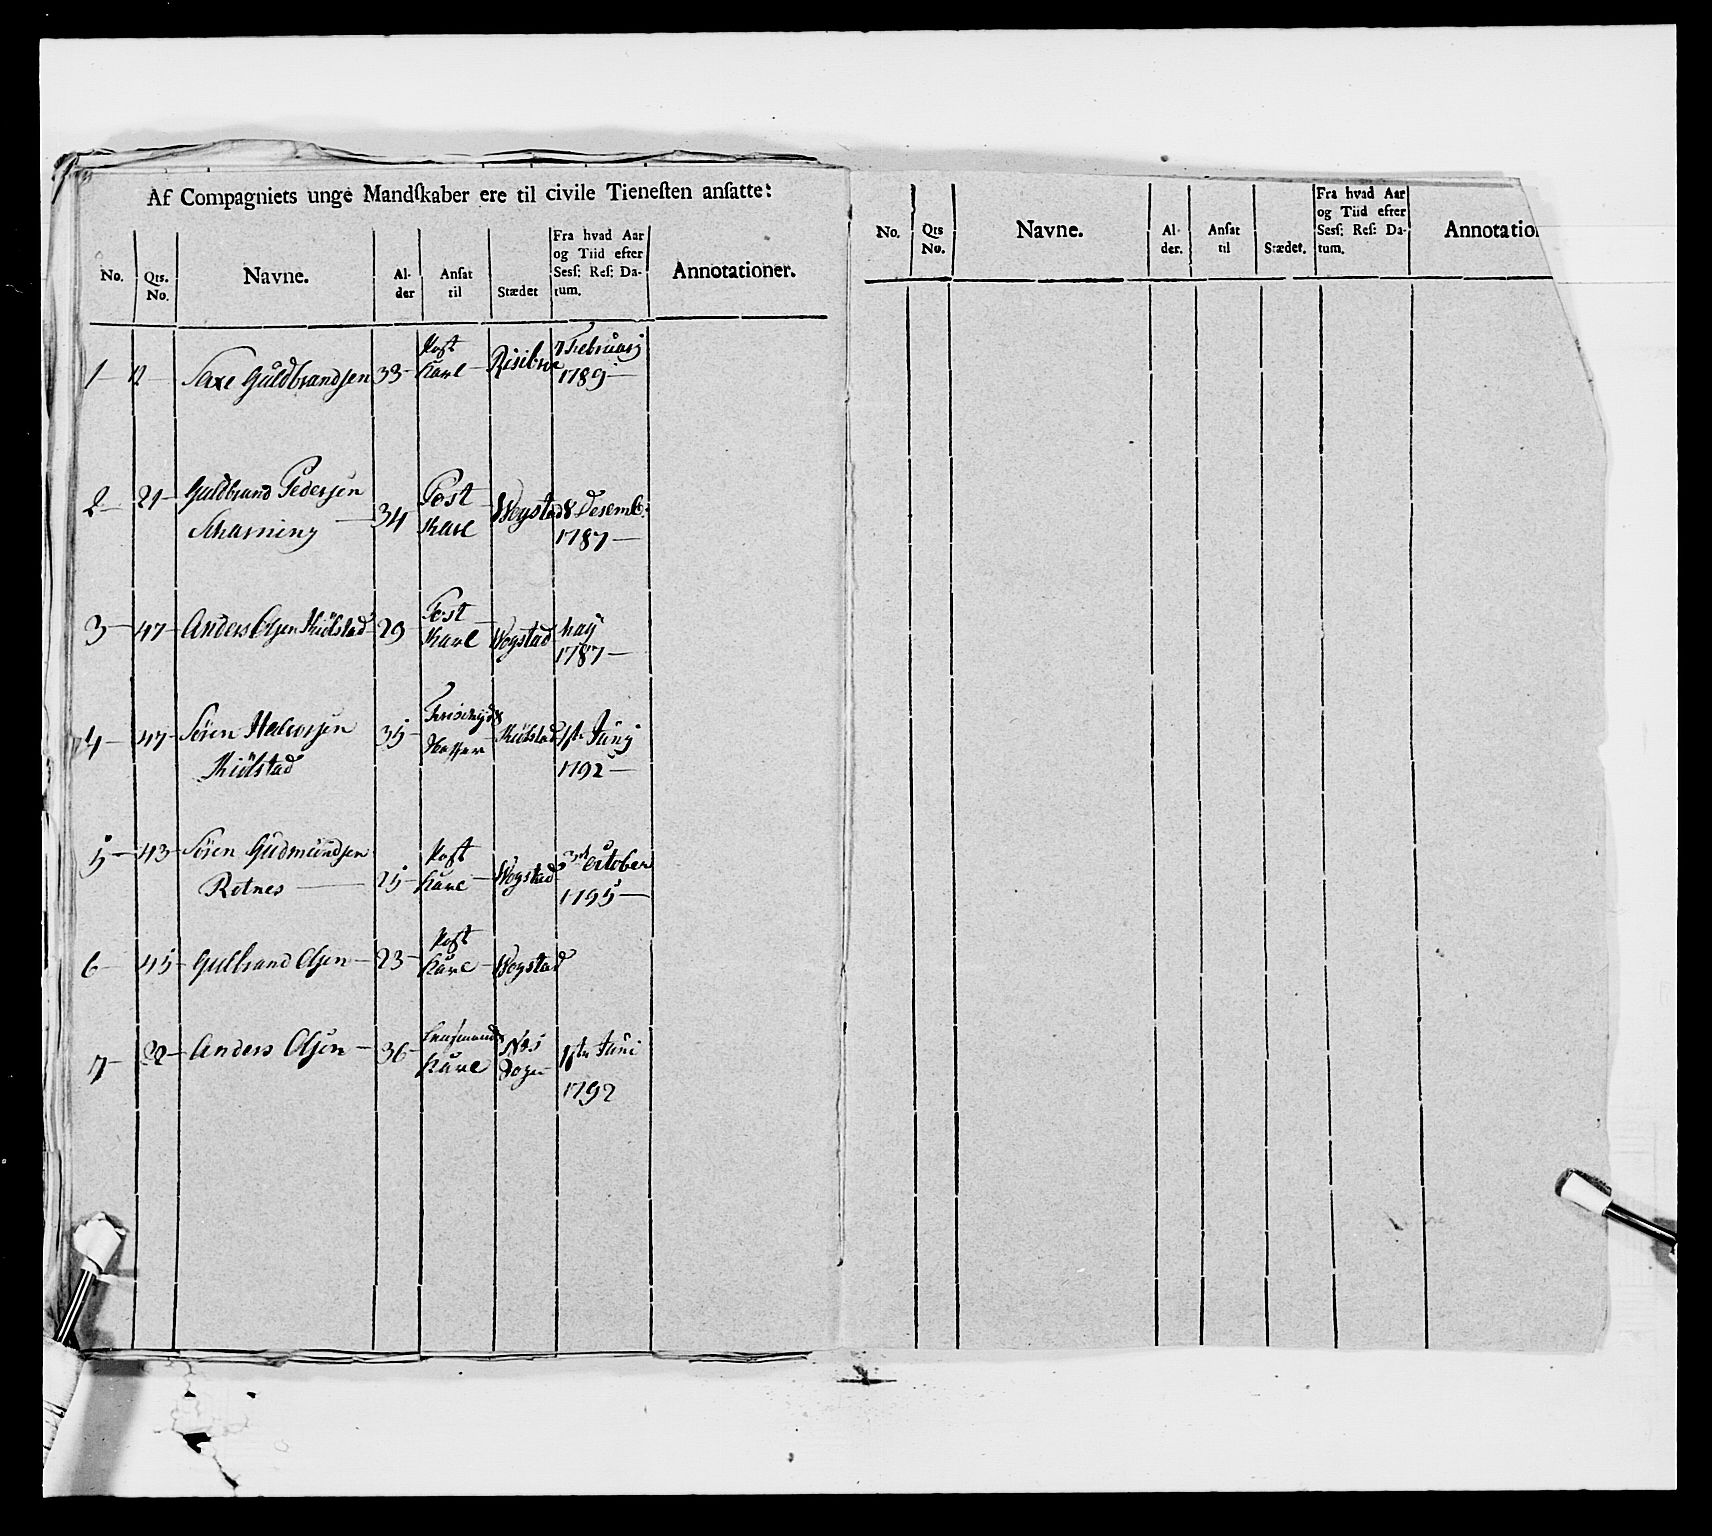 Af Compagniets unge Mandſkaber ere til civile Tieneſten anſatte:
No. Qts. No. Navne. Al- der Anſat til Stædet Fra hvad Aar og Tiid efter Sesſ: Reſ: Da- tum. Annotationer.
1 – 12 – Saxe Guldbrandsen 33 – Post Karl – Risibroe 7 Februarj 1789 –
2 – 21 – Guldbrand Pedersen Scharning – 34 Post Karl – Wogstad 8 Desemb: 1787 –
3 – 47 – Anders Olsen Kiölstad 29 Post Karl – Wogstad Maÿ 1787 –
4 – 47 – Sören Halvorsen Kiölstad 35 – Kiölstad 1ste Junj 1792 –
5 – 43 – Sören Gudmundsen Rotnes – 25 – Post Karl – Wogstad 3de October 1795 –
6 – 45 – Gulbrand Olsen – 23 – Post Karl – Wogstad
7 – 22 – Anders Olsen – 36 – Karl Næs Sogn 1ste Juni 1792
No. Qts No. Navne. Al- der. Anſat til Stædet. Fra hvad Aar og Tiid efter Sesſ: Reſ: Da- tum. Annotatio